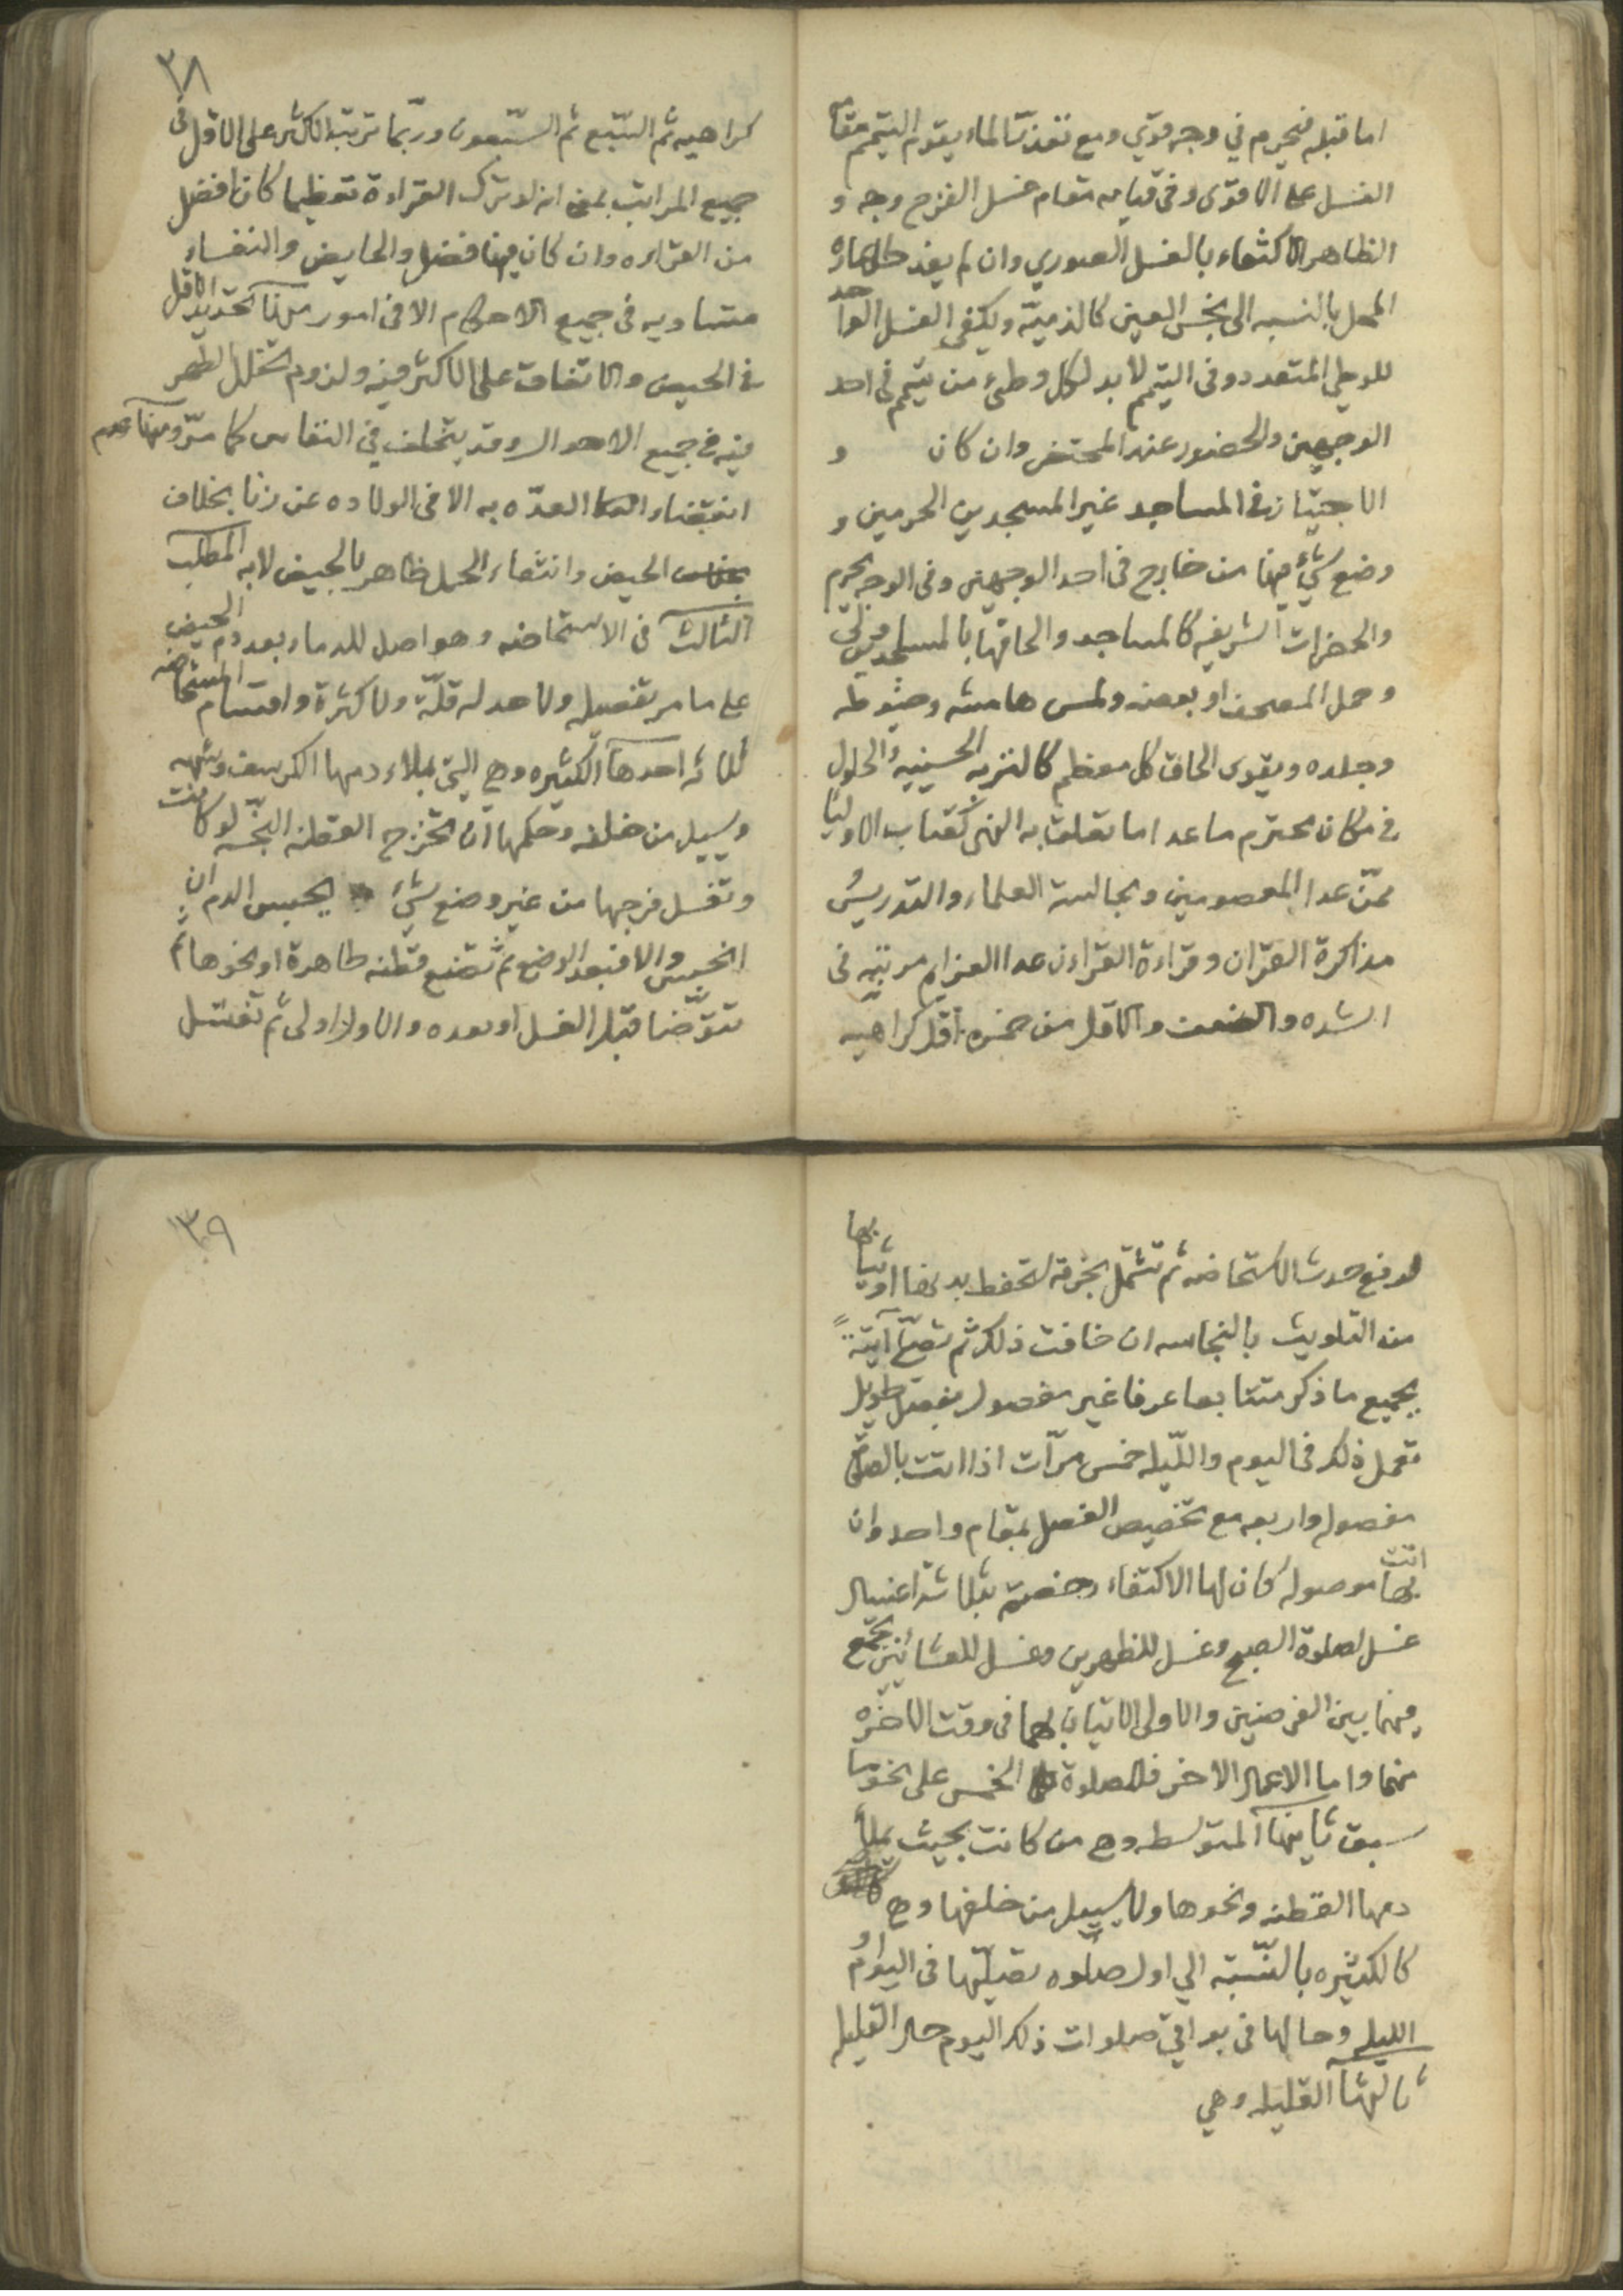 اما قبله فيحرم في وجه قوي ومع تعذر الماء يقوم التيمم مقام
الغسل على الاقوى وفي قيامه مقام غسل الفرج وجه و
الظاهر الاكتفاء بالغسل الصوري وان لم يفد طهارة
المحل بالنسبه الى نجس العين كالذميّه ويكفي الغسل الواحد
للوطي المتعدد وفي التيمم لا بد لكل وطيء من تيمم في احد
الوجهين والحضور عند المحتضر وان كان و
الاجتياز في المساجد غير المسجدين الحرمين و
وضع شيء فيها من خارج في احد الوجهين وفي الوجه يحرم
والحضرات الشريفه كالمساجد والحاقها بالمسجدين
وحمل المصحف او بعضه ولمس هامشه وخيوطه
وجلده ويقوى الحاق كل معظم كالتربه الحسينيه والحلول
في مكان محترم ماعدا ما تعلق به النهي كقباب الاوليا
ممّن عدا المعصومين ومجالسة العلماء والتدريس
مذاكرة القران وقراءة القراءن عدا العزايم مرتبه في
الشده والضعف والاقل من خمس اقل كراهيه
٣٨
كراهيه ثم السّبع ثم السّبعون وربّما ترتب الاكثر على الاقل في
جميع المراتب بمعنى انه لو ترك القراءة تعظيما كان افضل
من القراءه وان كان فيها فضل والحايض والنفساء
متساويه في جميع الاحكام الا في امور منها تحديد الاقل
في الحيض والاتفاق على الاكثر فيه ولزوم تخلل الطهر
فيه في جميع الاحوال وقد يتخلف في النفاس كما مرّ ومنها عدم
انقضاء العدّه به الا في الولاده عن زنا بخلاف
الحيض وانتفاء الحمل ظاهر بالحيض لا به المطلب
الثالث في الاستحاضه وهو اصل للدماء بعد دم الحيض
على ما مر تفصيله ولا حد له قلّة ولا كثرة واقسام المستحاضه
ثلاثه احدها الكثيره وهي التي يملاء دمها الكرسف وشبهه
ويسيل من خلفه وحكمها ان تخرج القطنه النجسه لو كانت
وتغسل فرجها من غير وضع شيء يحبس الدم ان
انحبس والا فبعد الوضع ثم تضع قطنه طاهرة او نحوها ثم
تتوضّا قبل الغسل او بعده والاول اولى ثم تغتسل
لدفع حدث الاستحاضه ثم تشتمل بخرقه لتحفط بدنها او ثيابها
من التلويث بالنجاسه ان خافت ذلك ثم تصلّي آتيةً
بجميع ما ذكر متتابعا عرفا غير مفصول بفصل طويل
تعمل ذلك في اليوم والليله خمس مرّات اذا اتت بالصلوة
مفصوله واربعه مع تخصيص الفصل بمقام واحد وان
اتت بها موصوله كان لها الاكتفاء بثلاثة اغسال
غسل لصلوة الصبح وغسل للظهرين وغسل للعشائين تجمع
فيهما بين الفرضين والاولى الاتيان بهما في وقت الاخره
منهما واما الاعمال الاخر فللصلوة الخمس على نحو ما
سبق ثانيها المتوسطه وهي من كانت بحيث يملأ
دمها القطنه ونحوها ولا يسيل من خلفها وهي
كالكثيره بالنّسبة الي اول صلوه تصلّيها في اليوم او
الليله وحالها في بواقي صلوات ذلك اليوم حال القليله
ثالثها القليله وهي
٣٩